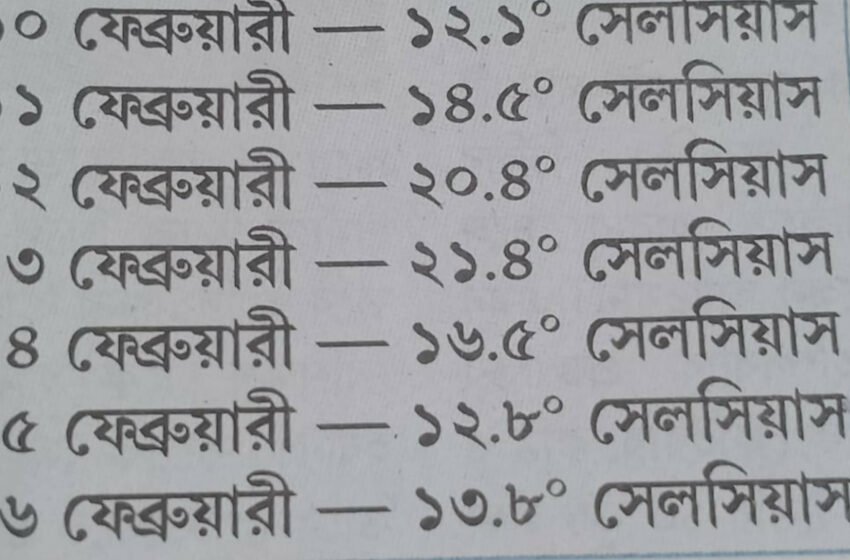 ০ ফেব্রুয়ারী — ১২.১° সেলসিয়াস
১ ফেব্রুয়ারী — ১৪.৫° সেলসিয়াস
২ ফেব্রুয়ারী — ২০.৪° সেলসিয়াস
৩ ফেব্রুয়ারী — ২১.৪° সেলসিয়াস
৪ ফেব্রুয়ারী — ১৬.৫° সেলসিয়াস
৫ ফেব্রুয়ারী — ১২.৮° সেলসিয়াস
৬ ফেব্রুয়ারী — ১৩.৮° সেলসিয়াস